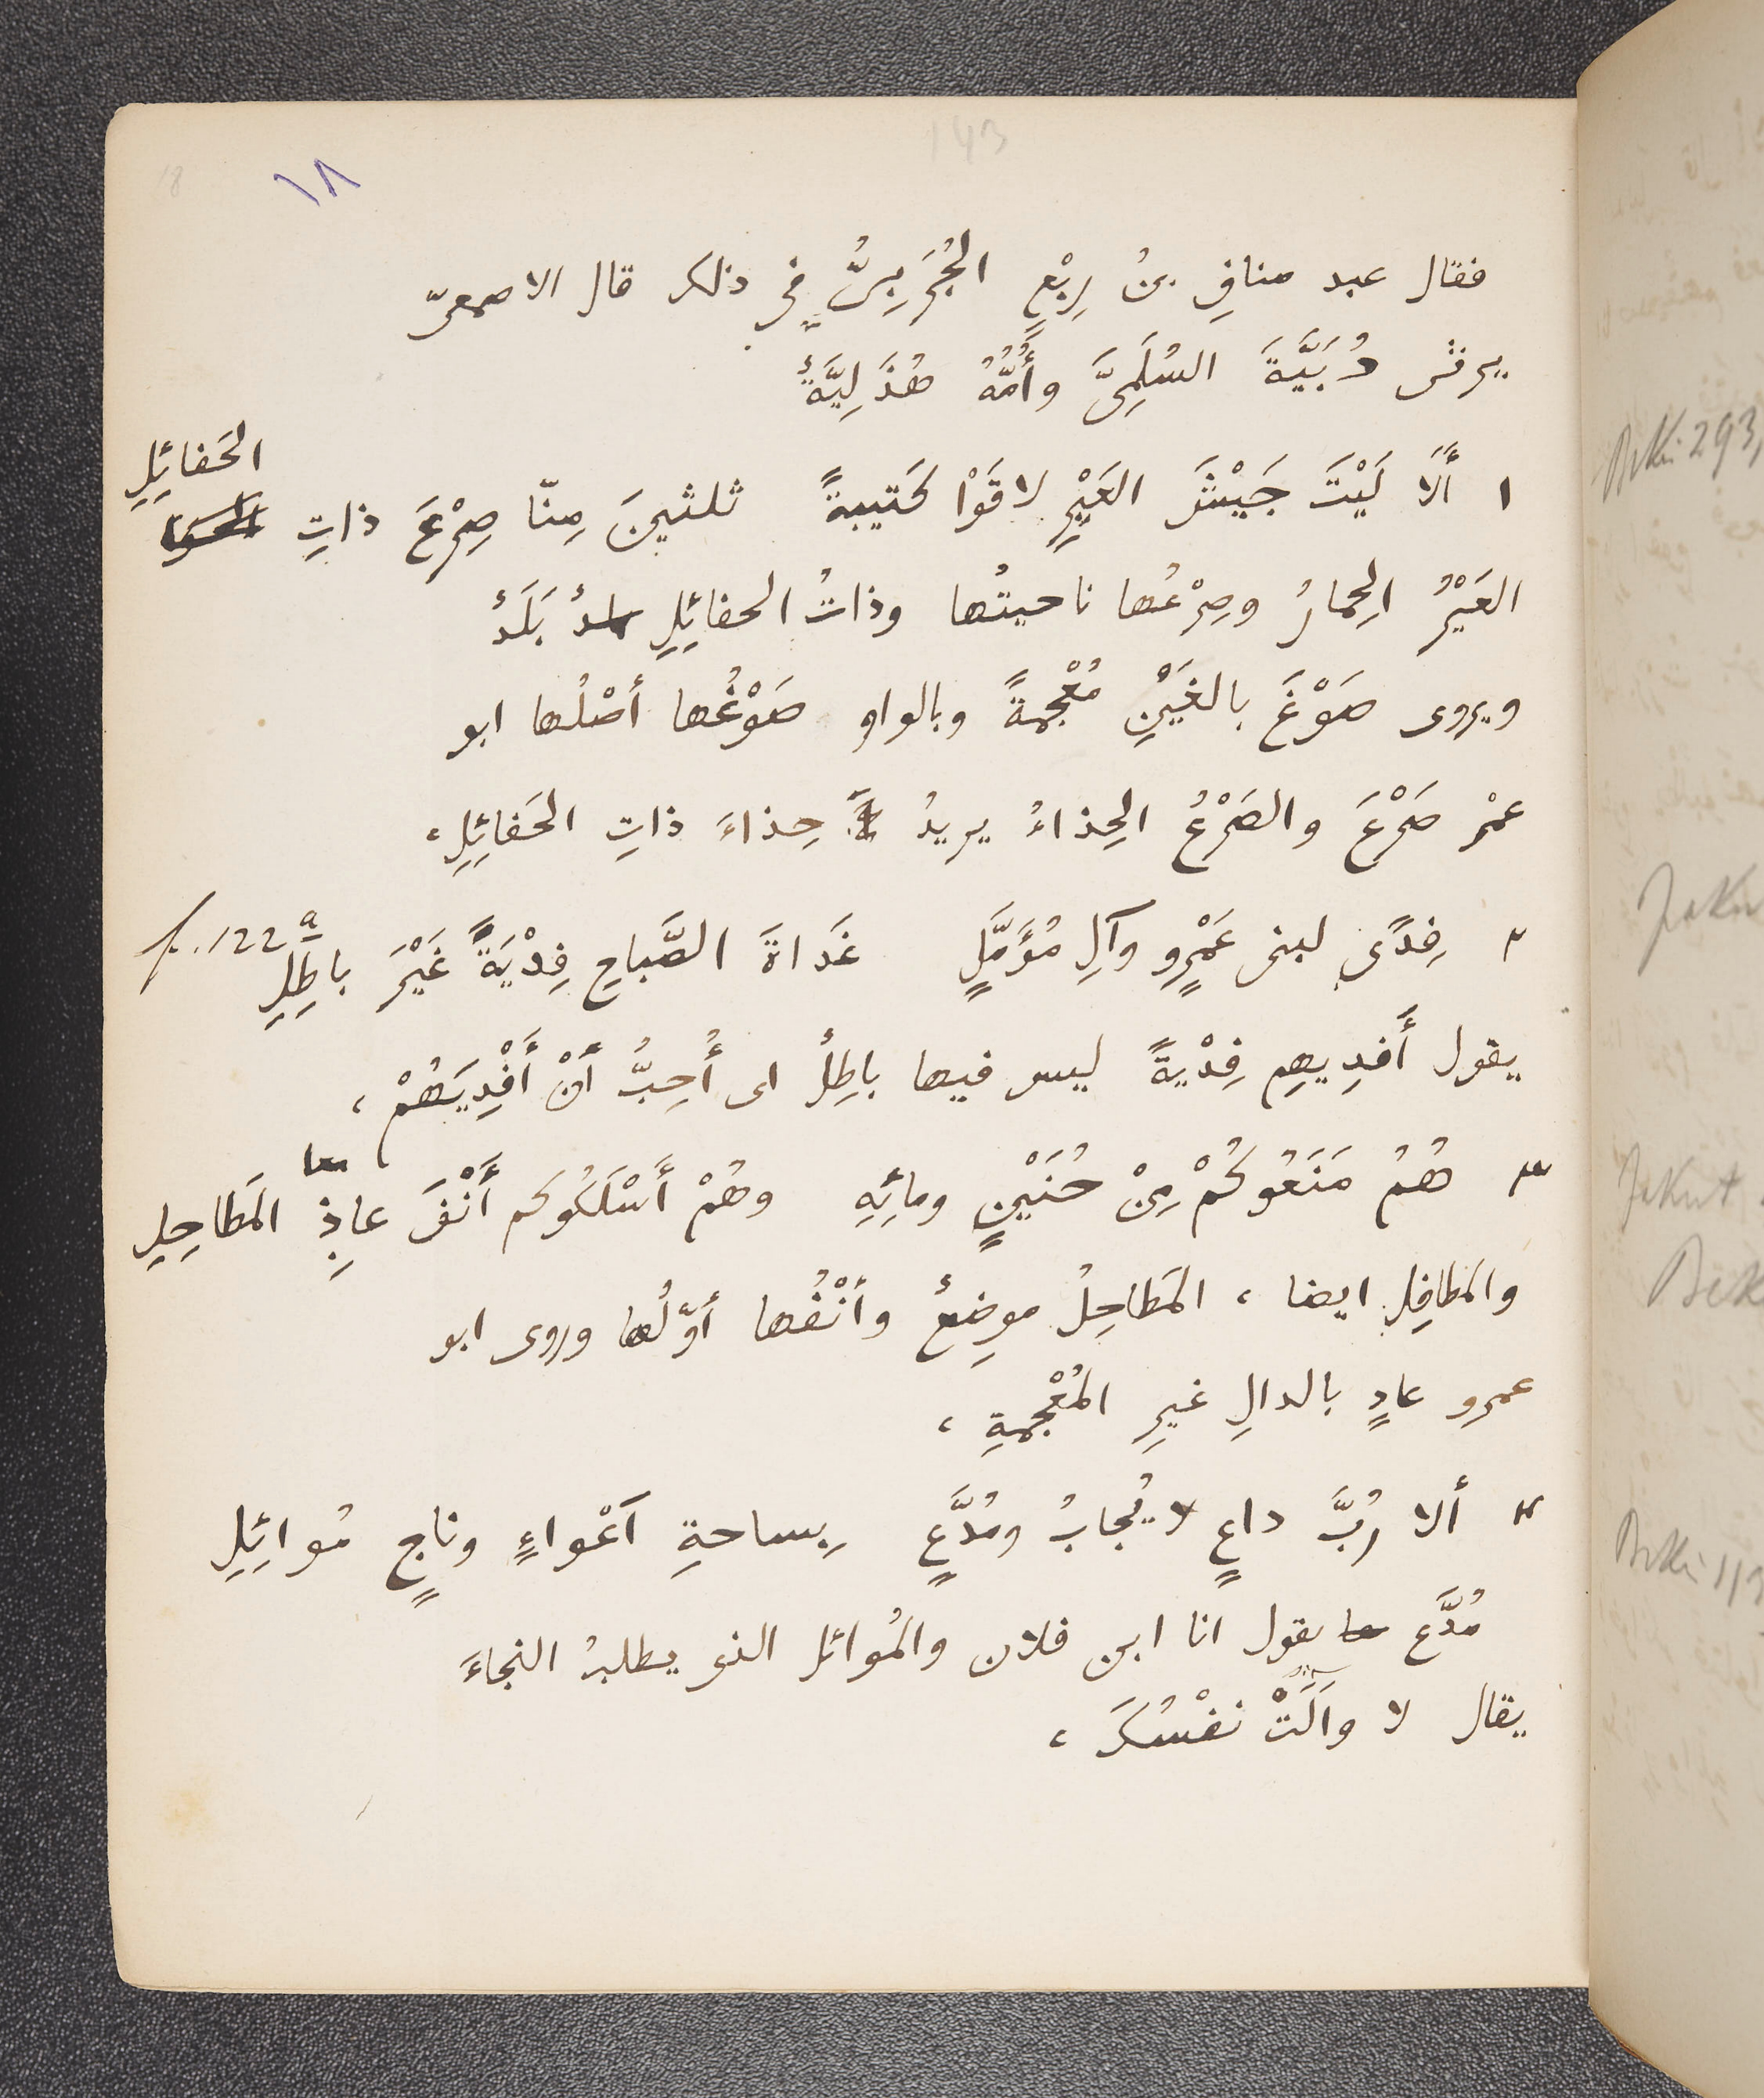 143
18
١٨
فقال عبد منافِ بنُ رِبْعٍ الجُرَبِىُّ فى ذلك قال الاصمعىّ
يرثى دُبَيَّةَ السُلَمِىَّ وأُمُّهُ هُذَلِيَّةٌ
١ أَلَا لَيْتَ جَيْشَ العَيْرِ لاقَوْا كَتيبةً ثلثينَ مِنّا صِرْعَ ذاتِ الحَفائِلِ
العَيْرُ الحِمارُ وصِرْعُها ناحيتُها وذاتُ الحفائِلِ بَلَدٌ
ويروى صَوْغَ بالغَيْنِ مُعْجمةً وبالواو صَوْغُها أصْلُها ابو
عمْر صَرْعَ والصَرْعُ الحِذاءُ يريدُ حِذاءَ ذاتِ الحَفائِلِ،
f. 122a
٢ فِدًى لبنى عَمْرٍو وآلِ مُؤَمَّلٍ غَداةَ الصَّباحِ فِدْيَةً غَيْرَ باطِلِ
يقول أَفدِيهِم فِدْيةً ليس فيها باطِلٌ اى أُحِبُّ أَنْ أَفْدِيَهُمْ،
٣ هُمُ مَنَعُوكُمْ مِنْ حُنَيْنٍ ومائِهِ وهُمْ أَسْلَكُوكم أَنْفَ عاذِ المَطاحِلِ
معا
والمَطافِل ايضا، المَطاحِلُ موضِعٌ وأنْفُها أوّلُها وروى ابو
عمرو عادٍ بالدالِ غيرِ المُعْجمةِ،
٤ ألا رُبَّ داعٍ لا يُجابُ ومُدَّعٍ بِساحةِ آعْواءٍ وناجٍ مُوائِلِ
مُدَّعٍ يقول انا ابن فلان والمُوائل الذى يطلبُ النجاءَ
يقال لا وآلَتْ نفْسُكَ،
Bekri 293
Jakut
Bekri 113